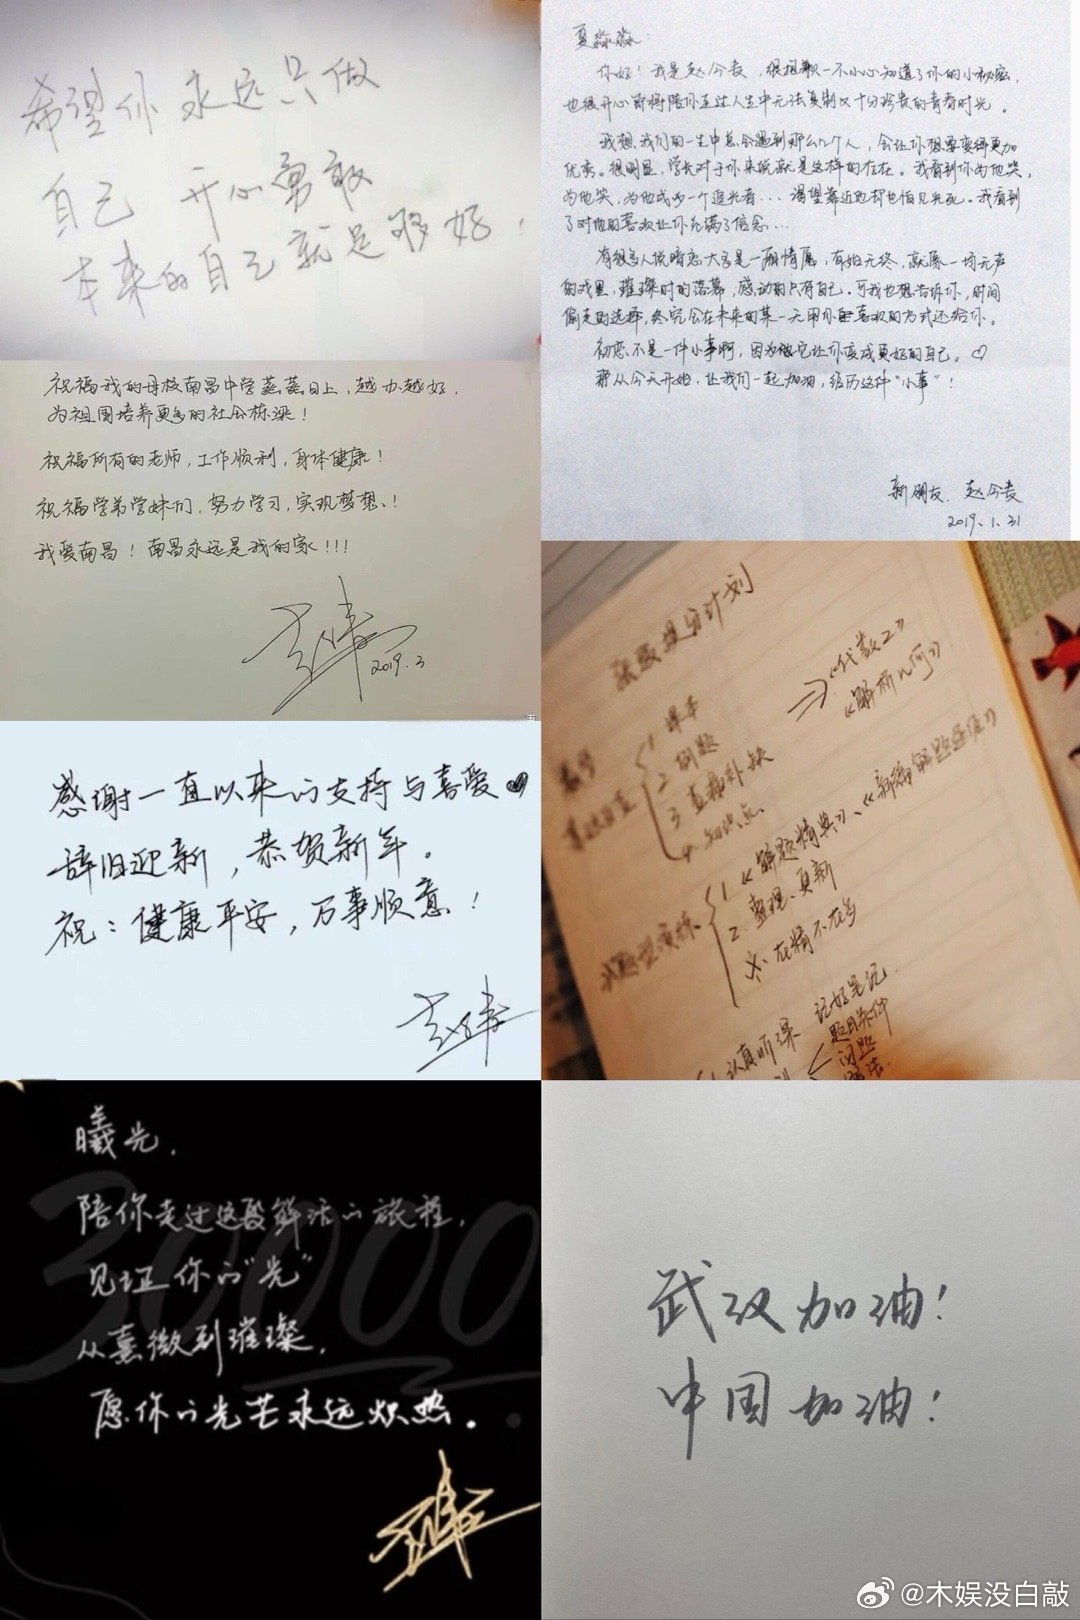 希望你永远只做
自己 开心勇敢
本来的自己就足够好!
夏淼淼:
你好!我是赵今麦,很抱歉一不小心知道了你的小秘密,
也很开心即将陪你走过人生中无法复制又十分珍贵的青春时光。
我想我们的一生中总会遇到那么几个人,会让你想要变得更加
优秀。很明显,学长对于你来说就是这样的存在。我看到你为他哭,
为他笑,为他成为一个追光者...渴望靠近他却也怕见光死。我看到
了对他的喜欢让你充满了信念...
有很多人说暗恋大多是一厢情愿,有始无终,就像一场无声
的戏里,璀璨时的落幕,感动的只有自己。可我也想告诉你,时间
偷走的选择,终究会在未来的某一天用你喜欢的方式还给你。
初恋不是一件小事啊,因为它让你变成更好的自己。♡
那从今天开始,让我们一起加油,经历这件“小事”!
新朋友 赵今麦
2019.1.31
祝福我的母校南昌中学蒸蒸日上,越办越好,
为祖国培养更多的社会栋梁!
祝福所有的老师,工作顺利,身体健康!
祝福学弟学妹们,努力学习,实现梦想!
我爱南昌!南昌永远是我的家!!!
2019.3
提分计划
1 课本
2 例题
3 查漏补缺
4 知识点
⇒《代数2》
《解析几何》
题型演练
1《解题精典》、《新编解题途径》
2 整理、更新
※ 在精不在多
认真听课
记好笔记
题目条件
问题
感谢一直以来的支持与喜爱♥
辞旧迎新,恭贺新年。
祝:健康平安,万事顺意!
30000
曦光,
陪你走过这段鲜活的旅程,
见证你的“光”
从熹微到璀璨,
愿你的光芒永远炽热。
武汉加油!
中国加油!
@木娱没白敲